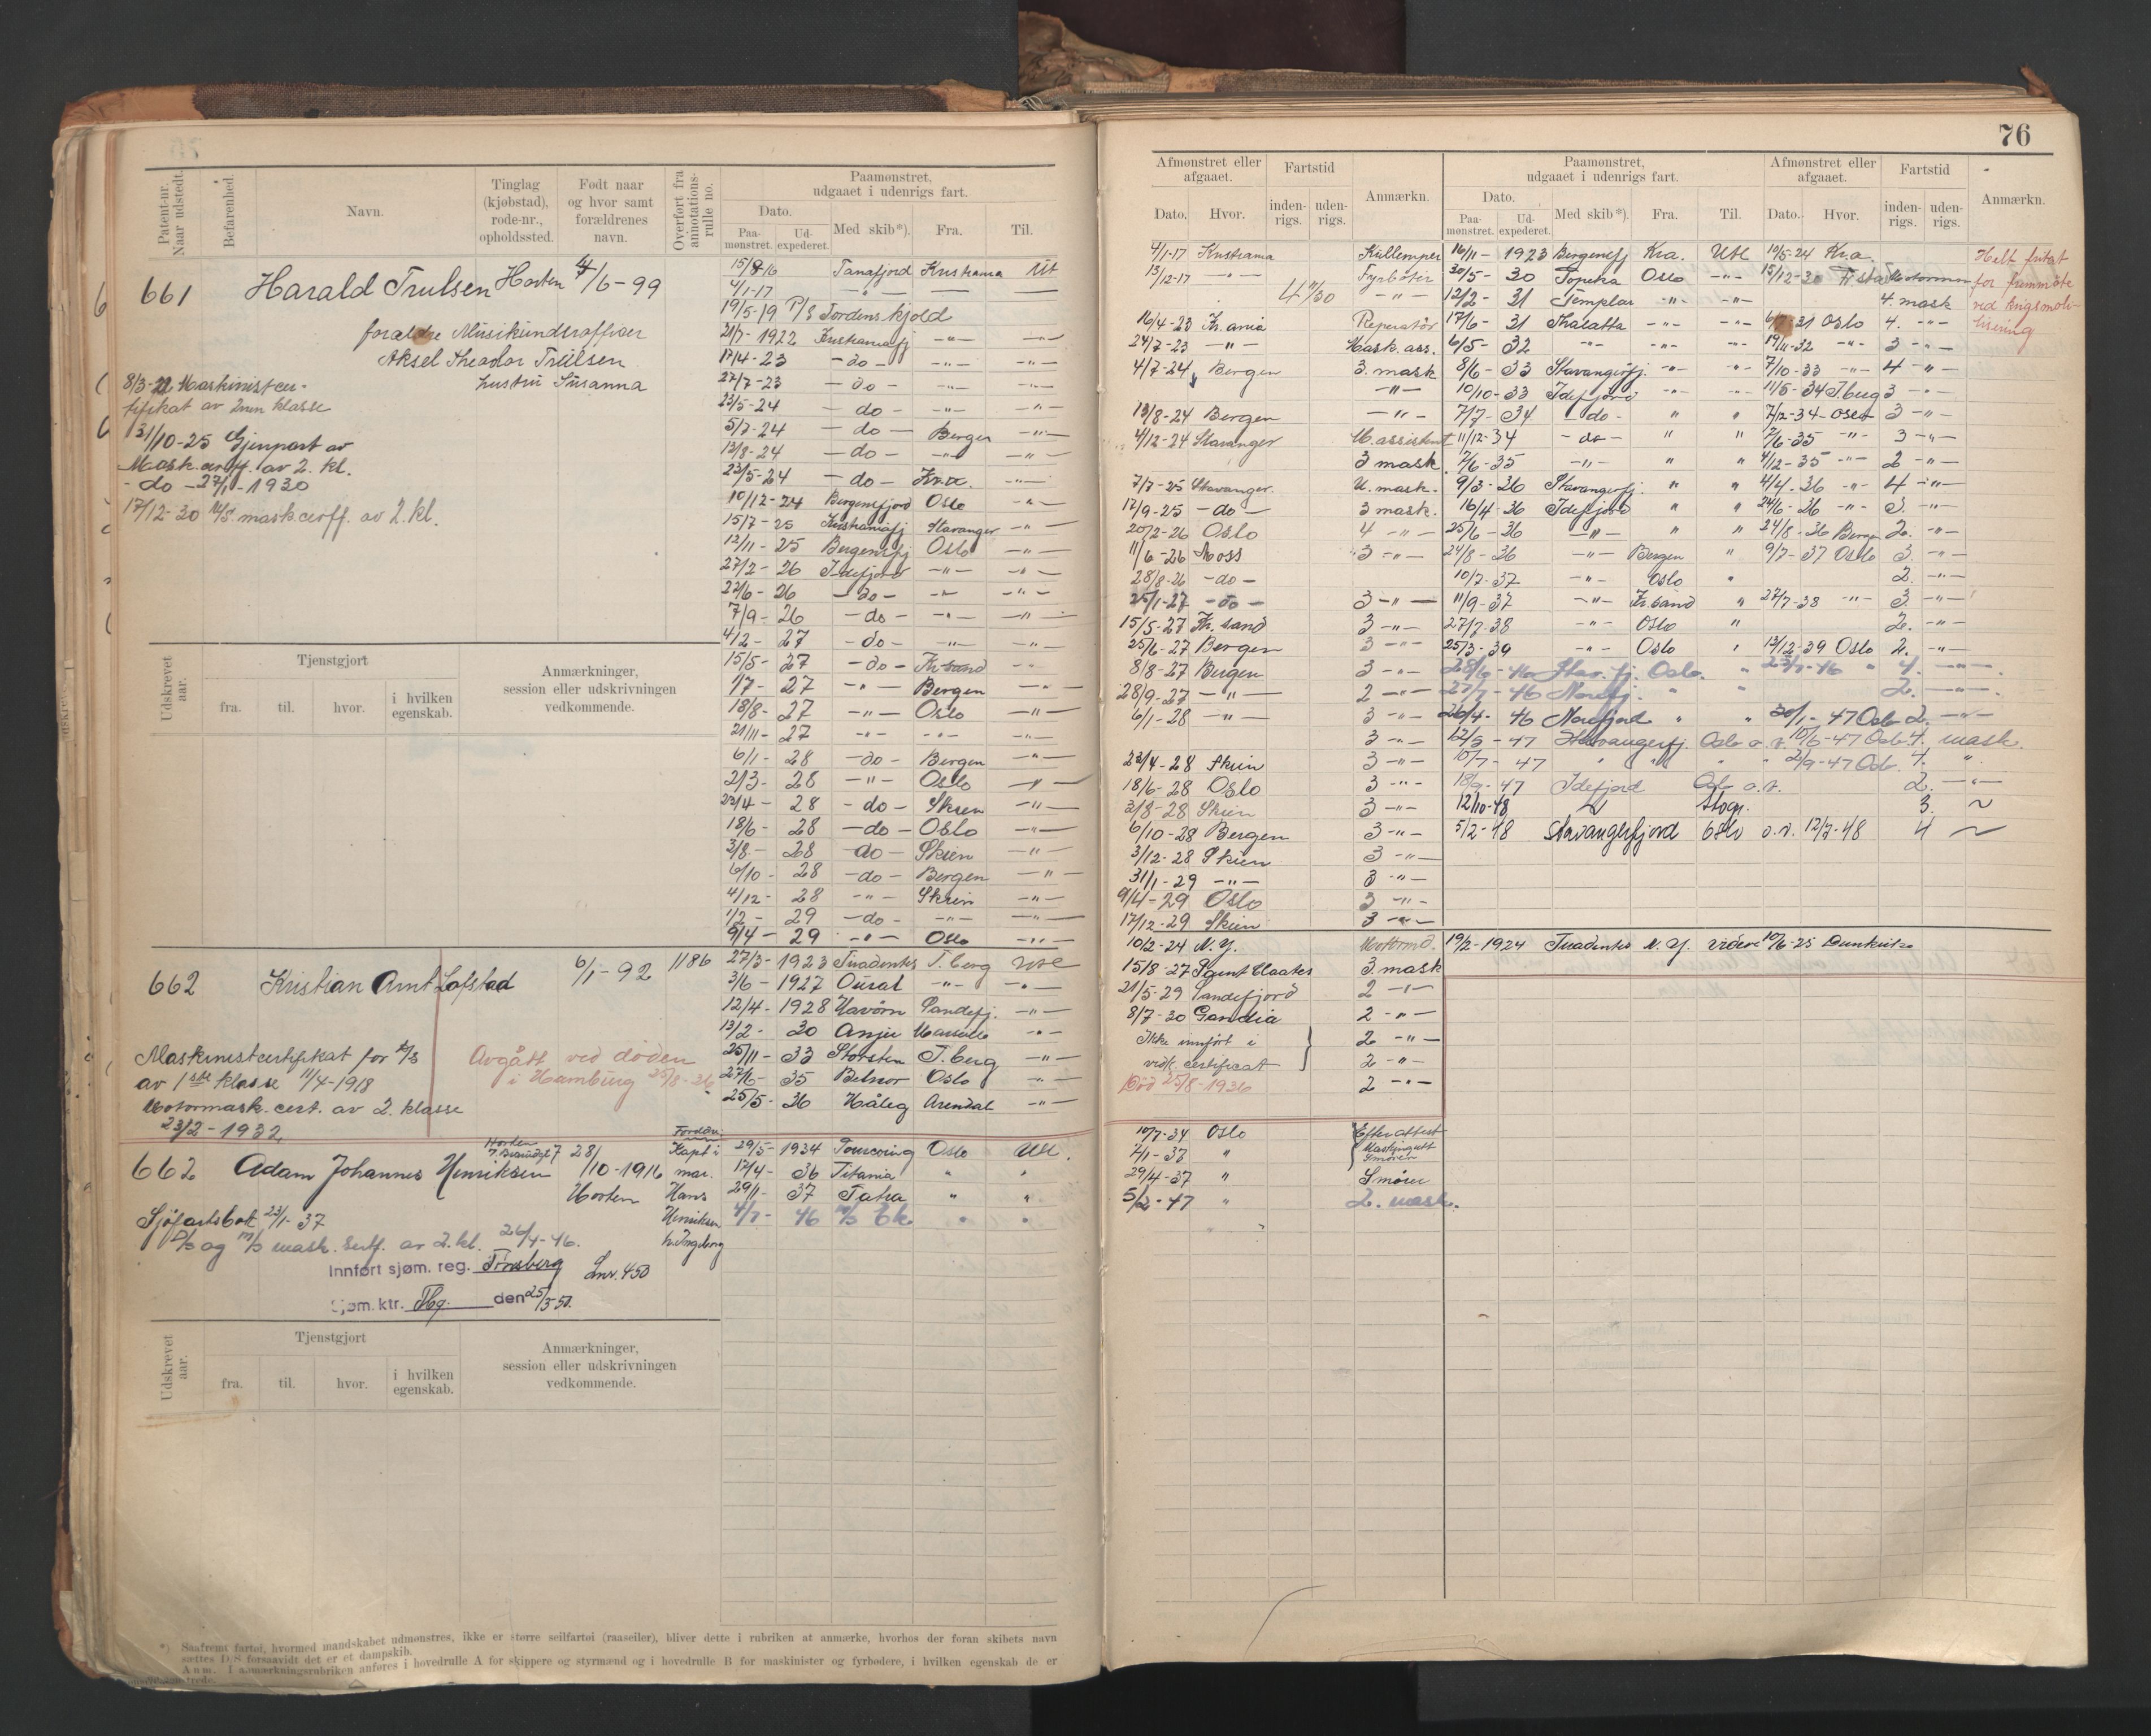 76
Patent-nr. Naar udstedt.
Befarenhed.
Navn.
Tinglag (kjøbstad), rode-nr., opholdssted.
Født naar og hvor samt forældrenes navn.
Overført fra annotations-rulle no.
Paamønstret, udgaaet i udenrigs fart.
Dato.
Paa-mønstret.
Ud-expederet.
Med skib*).
Fra.
Til.
661 Harald Trulsen Horten 4/6-99
Aksel Theodor Trulsen
hustru Susanna
8/3-22 Maskinistcer-
tifikat av 2nen klasse
31/10-25 Gjenpart av
Mask.certf. av 2. kl.
- do - 27/1-1930
17/12-30 M/S. mask.certf. av 2. kl.
15/8-16 Tanafjord Kristiania Ut
4/1-17 -"-
19/5-19 P/S Tordenskjold
21/7-1922 Kristianiafj -"-
17/4-23 -do- -"- -"-
27/7-23 -do- -"- -"-
23/5-24 -do- -"- -"-
5/7-24 -do- Bergen -"-
13/8-24 -do- -"- -"-
23/5-24 -do- Kr.a. -"-
10/12-24 Bergensfjord Oslo -"-
15/7-25 Kristianiafj Stavanger -"-
12/11-25 Bergensfj Oslo -"-
27/2-26 Idefjord -"- -"-
22/6-26 -do- -"- -"-
7/9-26 -do- -"- -"-
4/2-27 -do- -"- -"-
15/5-27 -do- Kr.sand -"-
1/7-27 -"- Bergen -"-
18/8-27 -"- Oslo -"-
21/11-27 -"- -"-
6/1-28 -do- Bergen -"-
2/3-28 -"- Oslo -"-
23/4-28 -do- Skien -"-
18/6-28 -do- Oslo -"-
3/8-28 -do- Skien -"-
6/10-28 -do- Bergen -"-
4/12-28 -"- Skien -"-
1/2-29 -do- -"- -"-
9/4-29 -"- Oslo -"-
Udskrevet aar.
Tjenstgjort
fra. til. hvor. i hvilken egenskab.
Anmærkninger, session eller udskrivningen vedkommende.
662 Kristian Arnt Lofstad 6/1-92 1186
Maskinistcertifikat for D/S
av 1ste klasse 11/4-1918
Motormask. cert. av 2. klasse
23/2-1932
Avgått ved døden
i Hamburg 25/8-36
27/3-1923 T.berg ute
3/6-1927 -"- -"-
12/4-1928 Havørn Sandefj. -"-
13/2-30 -"-
25/11-33 Storsten T.berg -"-
27/6-35 Belnor Oslo -"-
25/5-36 Håleg Arendal -"-
662 Adam Johannes Henriksen Horten 28/10-1916 Horten
Kapt i mar. Hans Henriksen h. Ingeborg
29/5-1934 Tourcoing Oslo Ut.
17/4-36 Titania " "
29/1-37 Tatra " "
4/7-46 M/S Ek " "
Sjøfartsbok 23/1-37
D/S og M/S mask. Sertf. av 2. kl. 26/4-46.
Innført sjøm. reg. Tønsberg Lnr. 450
Sjøm. ktr. Tbg. den 25/3 50.
Udskrevet aar.
Tjenstgjort
fra. til. hvor. i hvilken egenskab.
Anmærkninger, session eller udskrivningen vedkommende.
*) Saafremt fartøi, hvormed mandskabet udmønstres, ikke er større seilfartøi (raaseiler), bliver dette i rubriken at anmærke, hvorhos der foran skibets navn
sættes D/S forsaavidt det er et dampskib.
Anm. I anmærkningsrubriken anføres i hovedrulle A for skippere og styrmænd og i hovedrulle B for maskinister og fyrbødere, i hvilken egenskab de er
Afmønstret eller afgaaet.
Dato. Hvor.
Fartstid
inden-rigs. uden-rigs.
Anmærkn.
Paamønstret, udgaaet i udenrigs fart.
Dato.
Paa-mønstret. Ud-expederet. Med skib*). Fra. Til.
Afmønstret eller afgaaet.
Dato. Hvor.
Fartstid
inden-rigs. uden-rigs.
Anmærkn.
4/1-17 Kristiania Kullemper
13/12-17 -"- Fyrbøter
4 11/30 -"-
16/4-23 Kr.ania Reperatør
24/7-23 -"- Mask. ass.
4/7-24 Bergen 3. mask
-"-
13/8-24 Bergen -"-
4/12-24 Stavanger M. assistent
3 mask.
7/7-25 Stavanger U. mask.
17/9-25 -do- 3 mask.
20/2-26 Oslo 4 -"-
11/6-26 Moss 3 -"-
28/8-26 -do-
25/1-27 -do- 3 -"-
15/5-27 Kr.sand 3 -"-
25/6-27 Bergen 3 -"-
8/8-27 Bergen 3 -"-
28/9-27 -"- 2 -"-
6/1-28 -"- 3 -"-
3 -"-
23/4-28 Skien 3 -"-
18/6-28 Oslo 3 -"-
3/8-28 Skien 3 -"-
6/10-28 Bergen 3 -"-
3/12-28 Skien 3 -"-
31/1-29 -"- 3 -"-
9/4-29 Oslo 3 -"-
17/12-29 Skien 3 -"-
16/11-1923 Bergensfj Kra. Ute 10/5-24 Kra.
30/5-30 Topeka Oslo -"- 15/12-30 Motorman
12/2-31 Templar -"- -"- 4. mask
17/6-31 Thalatta -"- -"- 31 Oslo 4. -"-
6/5-32 -"- -"- -"- 19/11-32 -"- 3 -"-
8/6-33 Stavangerfj. -"- -"- 7/10-33 -"- 4 -"-
10/10-33 Idefjord -"- -"- 11/5-34 T.berg 3 -"-
7/7-34 -do- " " 7/12-34 Oslo 3 -"-
11/12-34 -do- " " 7/6-35 -"- 3 -"-
7/6-35 -"- " " 4/12-35 -"- 2 -"-
9/3-36 Stavangerfj. " " 4/4-36 -"- 4 -"-
16/4-36 Idefjord " " 24/6-36 -"- 3. -"-
25/6-36 -"- " " 24/8-36 Bergen 2. -"-
24/8-36 -"- Bergen " 9/7-37 Oslo 3. -"-
10/7-37 -"- Oslo " 2. -"-
11/9-37 -"- Kr.sand " 27/7-38 -"- 3. -"-
27/7-38 -"- Oslo " 2. -"-
25/3-39 -"- Oslo " 13/12-39 Oslo 2. -"-
28/6-46 Stav.fj. Oslo. " 23/7-46 " 4. -"-
27/7-46 Norefj. " " 2. -"-
26/4-46 Norefjord " " 30/1-47 Oslo 2. -"-
12/5-47 Stavangerfj. Oslo o.v. 10/6-47 Oslo 4. mask.
10/7-47 " " " 2/9-47 Oslo. 4. "
18/9-47 Idefjord Oslo o.v. 2. -"-
12/10-48 3. ~
5/2-48 Stavangerfjord Oslo o.v. 12/7-48 4 ~
Helt fritat
for fremmøte
ved krigsmobi-
lisering
10/2-24 N.Y. Motormd. 19/2-1924 N.Y. videre 10/6-25 Dunkirk
15/8-27 3. mask
21/5-29 Sandefjord 2 -"-
8/7-30 Gandia 2 -"-
Ikke innført i 2 -"-
vedk. certificat 2 -"-
Død 25/8-1936 2 -"-
10/7-34 Oslo Efter attest
7/1-37 " Maskingutt Smører
29/4-37 " Smører
5/2-47 " 2. mask.